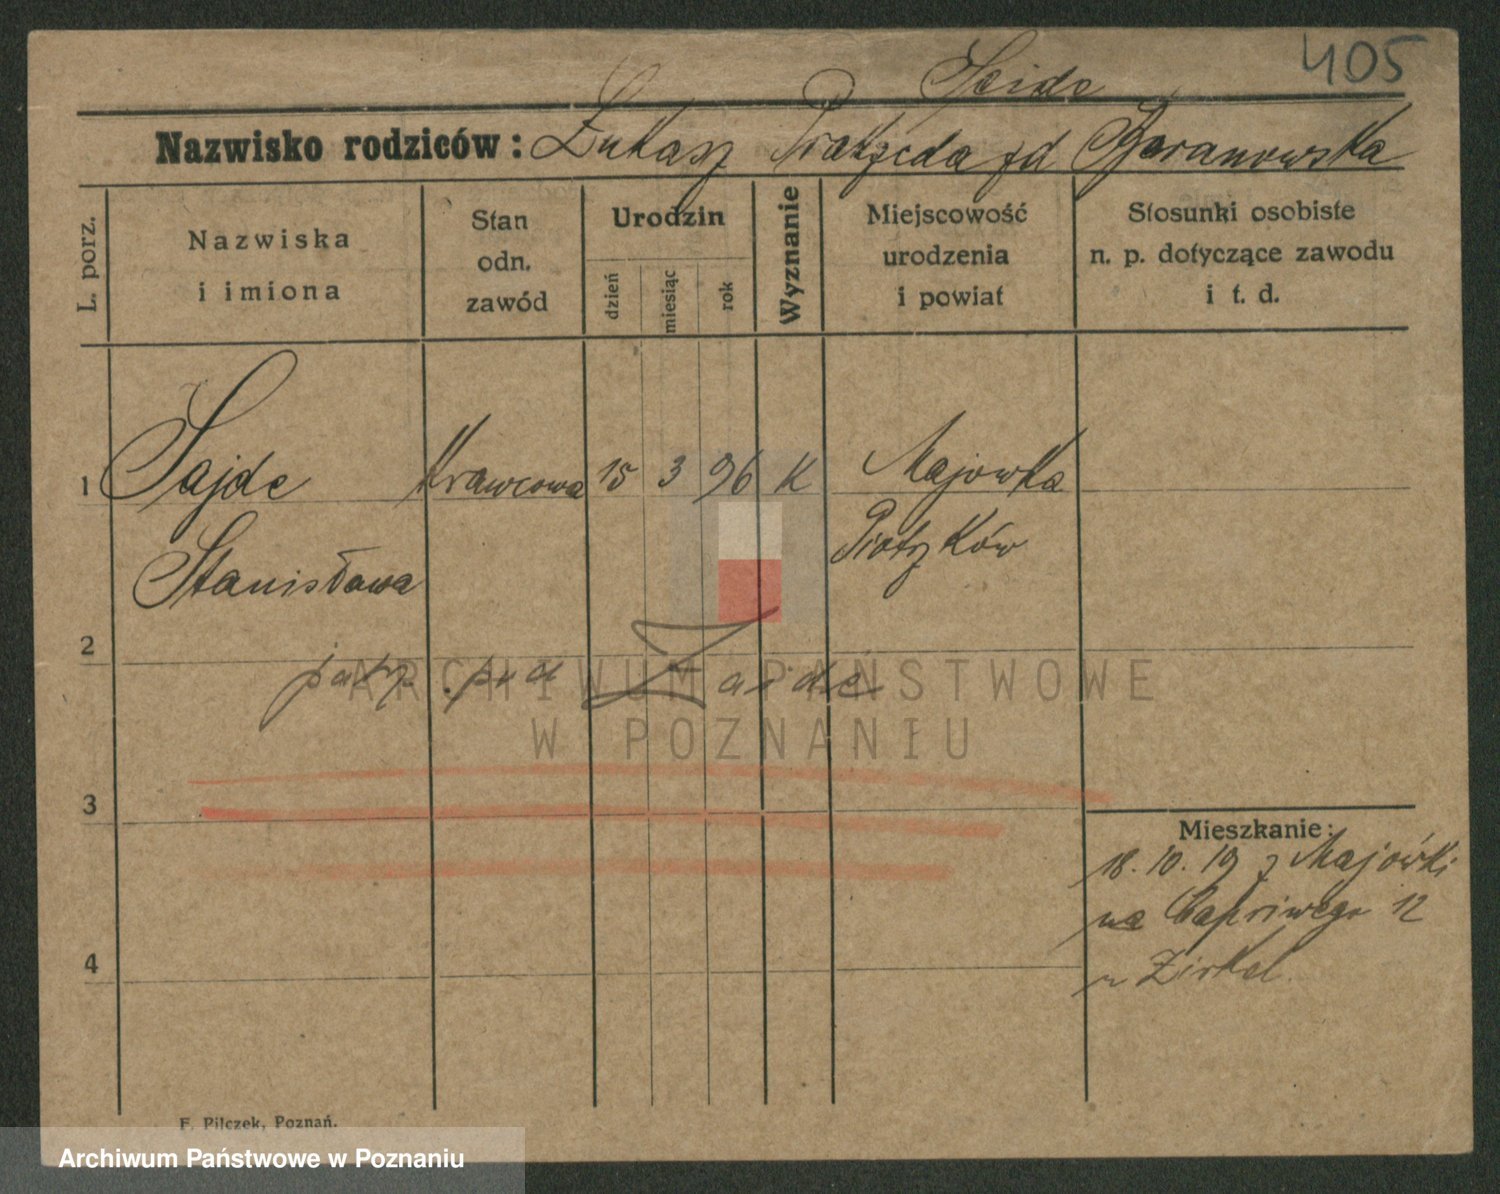 405
Seide
Nazwisko rodziców: Łukasz Prakseda fd Baranowska
L. porz.
Nazwiska
i imiona
Stan
odn.
zawód
Urodzin
dzień
miesiąc
rok
Wyznanie
Miejscowość
urodzenia
i powiat
Stosunki osobiste
n. p. dotyczące zawodu
i t. d.
1 Sajde Krawcowa 15 3 96 K Majowka
Stanisława Piotrków
2
patrz pod Zaide
ARCHIWUM PAŃSTWOWE
W POZNANIU
3
Mieszkanie:
18.10.19 z Majówki
na Capriwego 12
Zirkel.
4
F. Pilczek, Poznań.
Archiwum Państwowe w Poznaniu